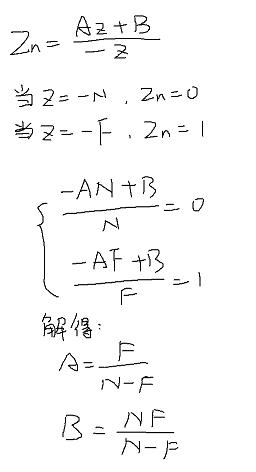 Zn = (Az+B)/(-z)
当 z=-N , Zn=0
当 z=-F , Zn=1
{ (-AN+B)/N = 0
(-AF+B)/F = 1
解得:
A = F/(N-F)
B = NF/(N-F)